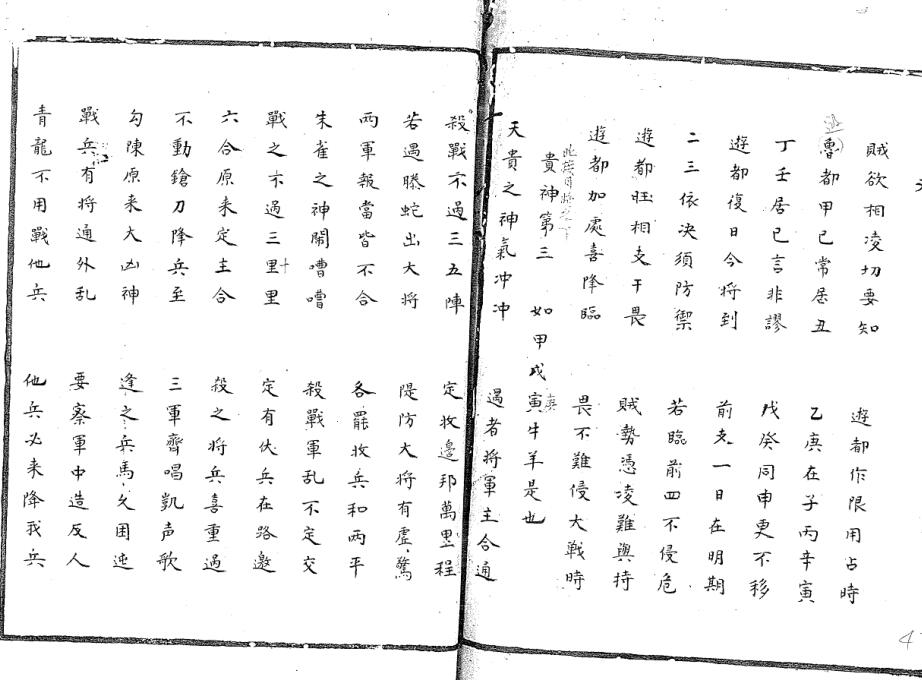 賊欲相凌切要知 遊都作限用占時
魯都甲己常居丑 乙庚在子丙辛寅
丁壬居巳言非謬 戊癸同申更不移
遊都復日今將到 前支一日在明期
二三依決須防禦 若臨前四不侵危
遊都旺相支干畏 賊勢憑凌難與持
遊都加處喜降臨 畏不難侵大戰時
貴神第三 如甲戊寅牛羊是也
天貴之神氣冲冲 遇者將軍主合通
殺戰不過三五陣 定收邊邦萬里程
若遇螣蛇出大將 隄防大將有虛驚
兩軍報當皆不合 各罷收兵和兩平
朱雀之神鬧嘈嘈 殺戰軍乱不定交
戰之不過三里里 定有伏兵在路邀
六合原来定主合 殺之將兵喜重過
不動鎗刀降兵至 三軍齊唱凱声歌
勾陳原来大凶神 逢之兵馬久困迍
戰兵有將通外乱 要察軍中造反人
青龍不用戰他兵 他兵必来降我兵